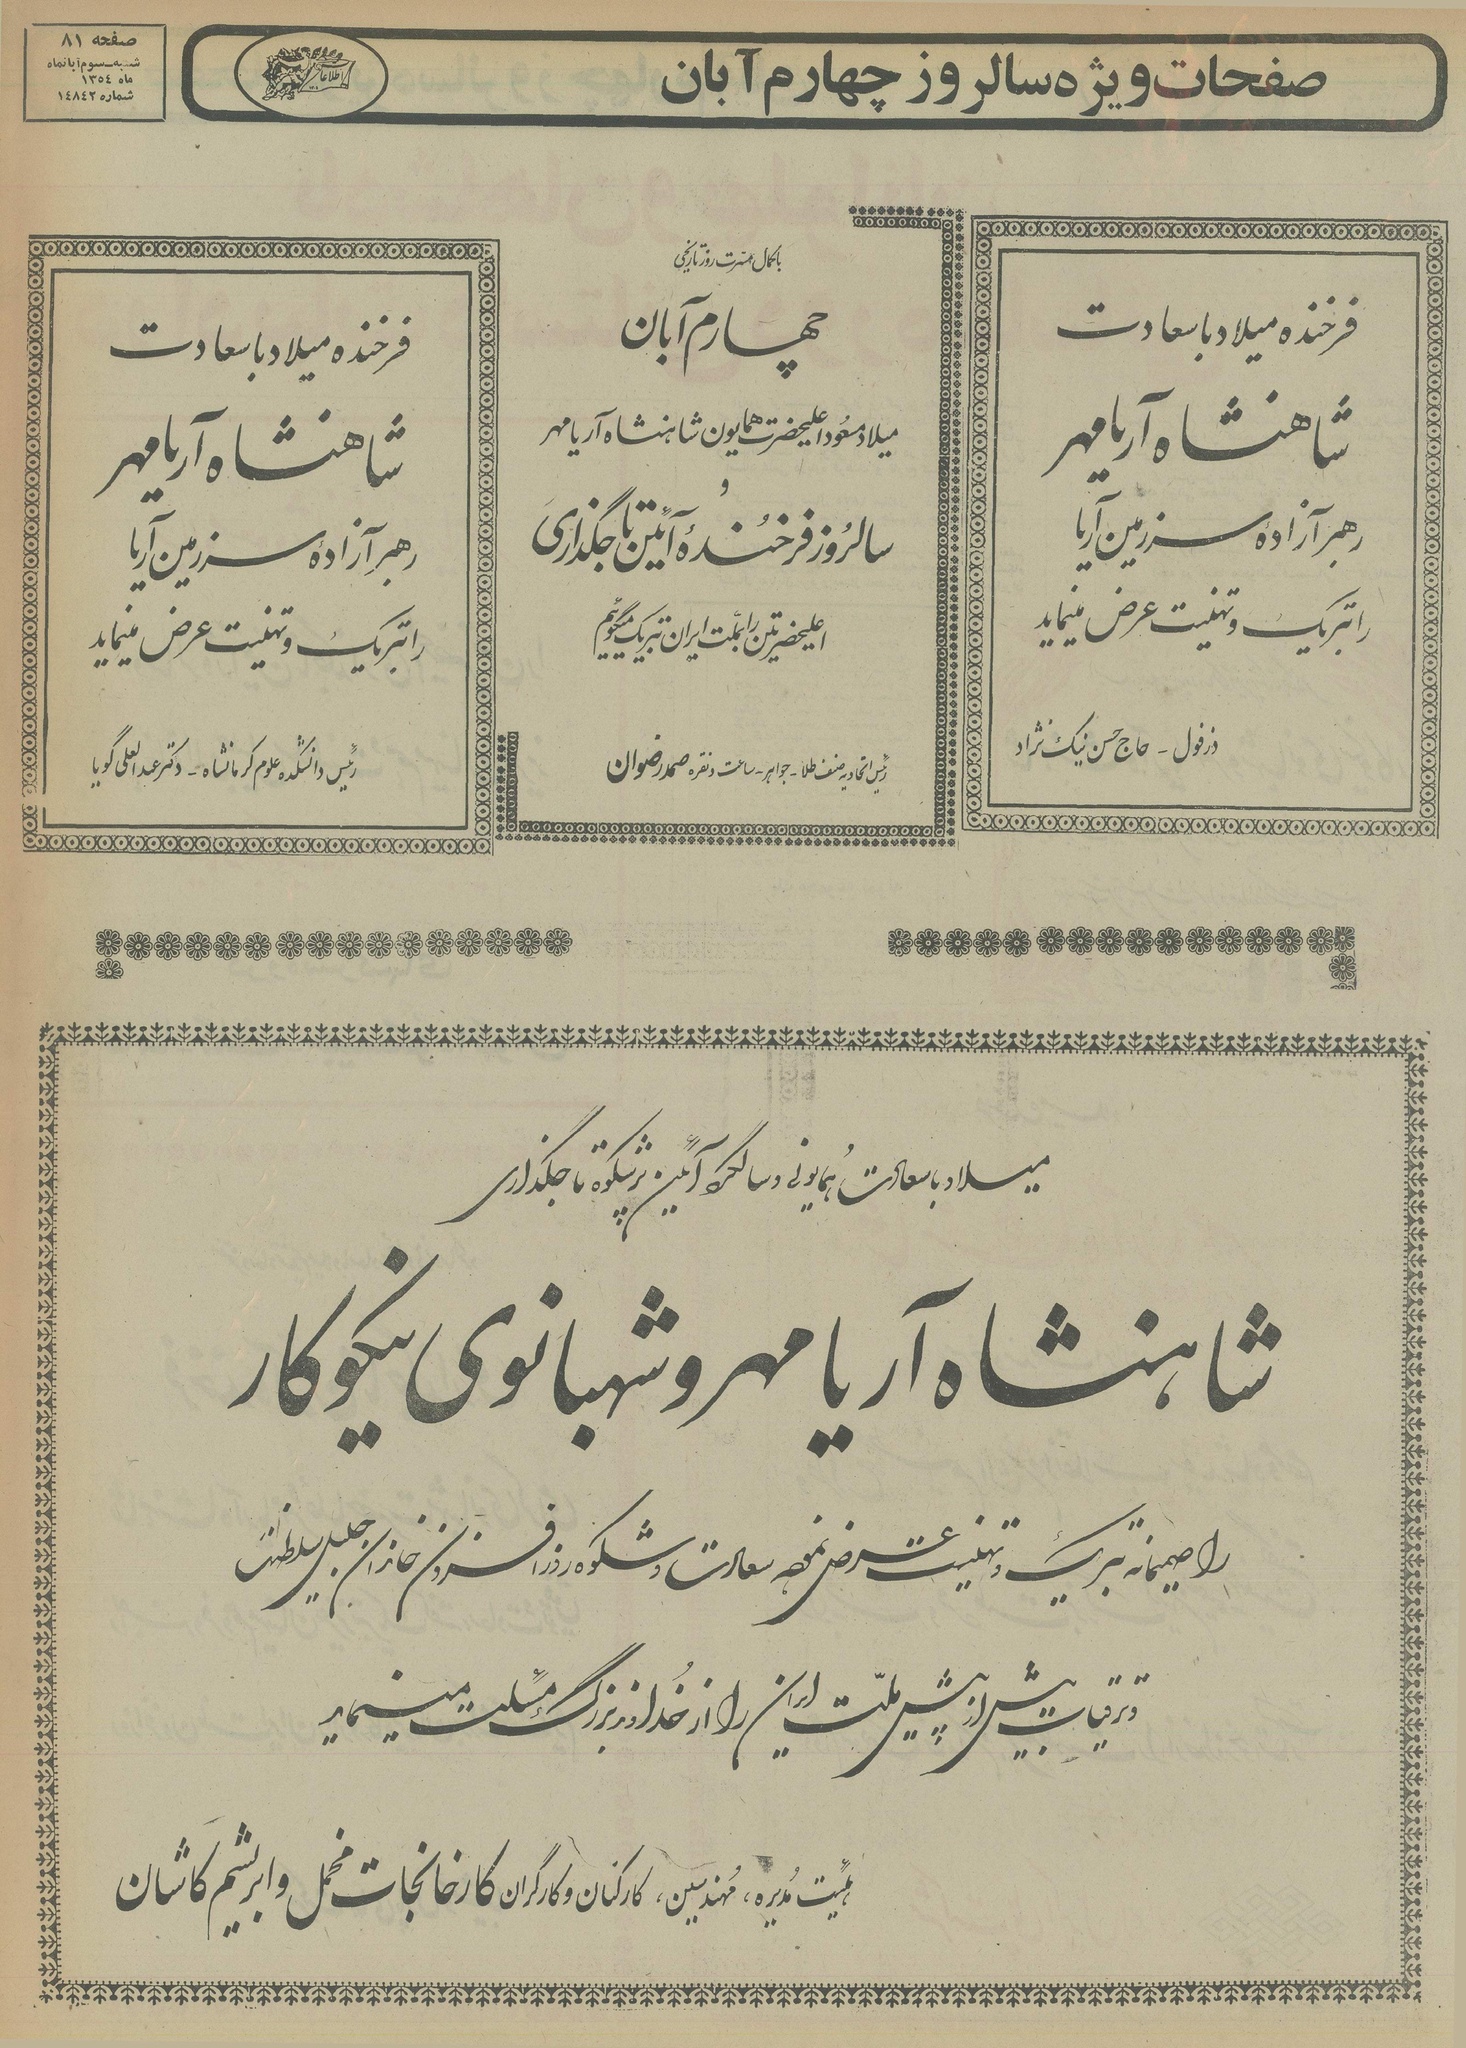 صفحات ویژه سالروز چهارم آبان
اطلاعات
صفحه ۸۱
شنبه سوم آبانماه
ماه ۱۳۵٤
شماره ۱٤۸٤۲
فرخنده میلاد با سعادت
شاهنشاه آریامهر
رهبر آزادهٔ سرزمین آریا
را تبریک و تهنیت عرض مینماید
دزفول - حاج حسن نیک نژاد
با کمال مسرت روز تاریخی
چهارم آبان
میلاد مسعود اعلیحضرت همایون شاهنشاه آریامهر
و
سالروز فرخندهٔ آئین تاجگذاری
اعلیحضرتین را بملت ایران تبریک میگوئیم
رئیس اتحادیه صنف طلا - جواهر - ساعت و نقره صمد رضوان
فرخنده میلاد با سعادت
شاهنشاه آریامهر
رهبر آزادهٔ سرزمین آریا
را تبریک و تهنیت عرض مینماید
رئیس دانشکده علوم کرمانشاه - دکتر عبدالعلی گویا
میلاد با سعادت همایونی و سالگرد آئین پرشکوه تاجگذاری
شاهنشاه آریامهر و شهبانوی نیکوکار
را صمیمانه تبریک و تهنیت عرض نموده سعادت و شکوه روزافزون خاندان جلیل سلطنت
و ترقیات بیش از پیش ملّت ایران را از خداوند بزرگ مسئلت مینماید
هیئت مدیره، مهندسین، کارکنان و کارگران کارخانجات مخمل و ابریشم کاشان